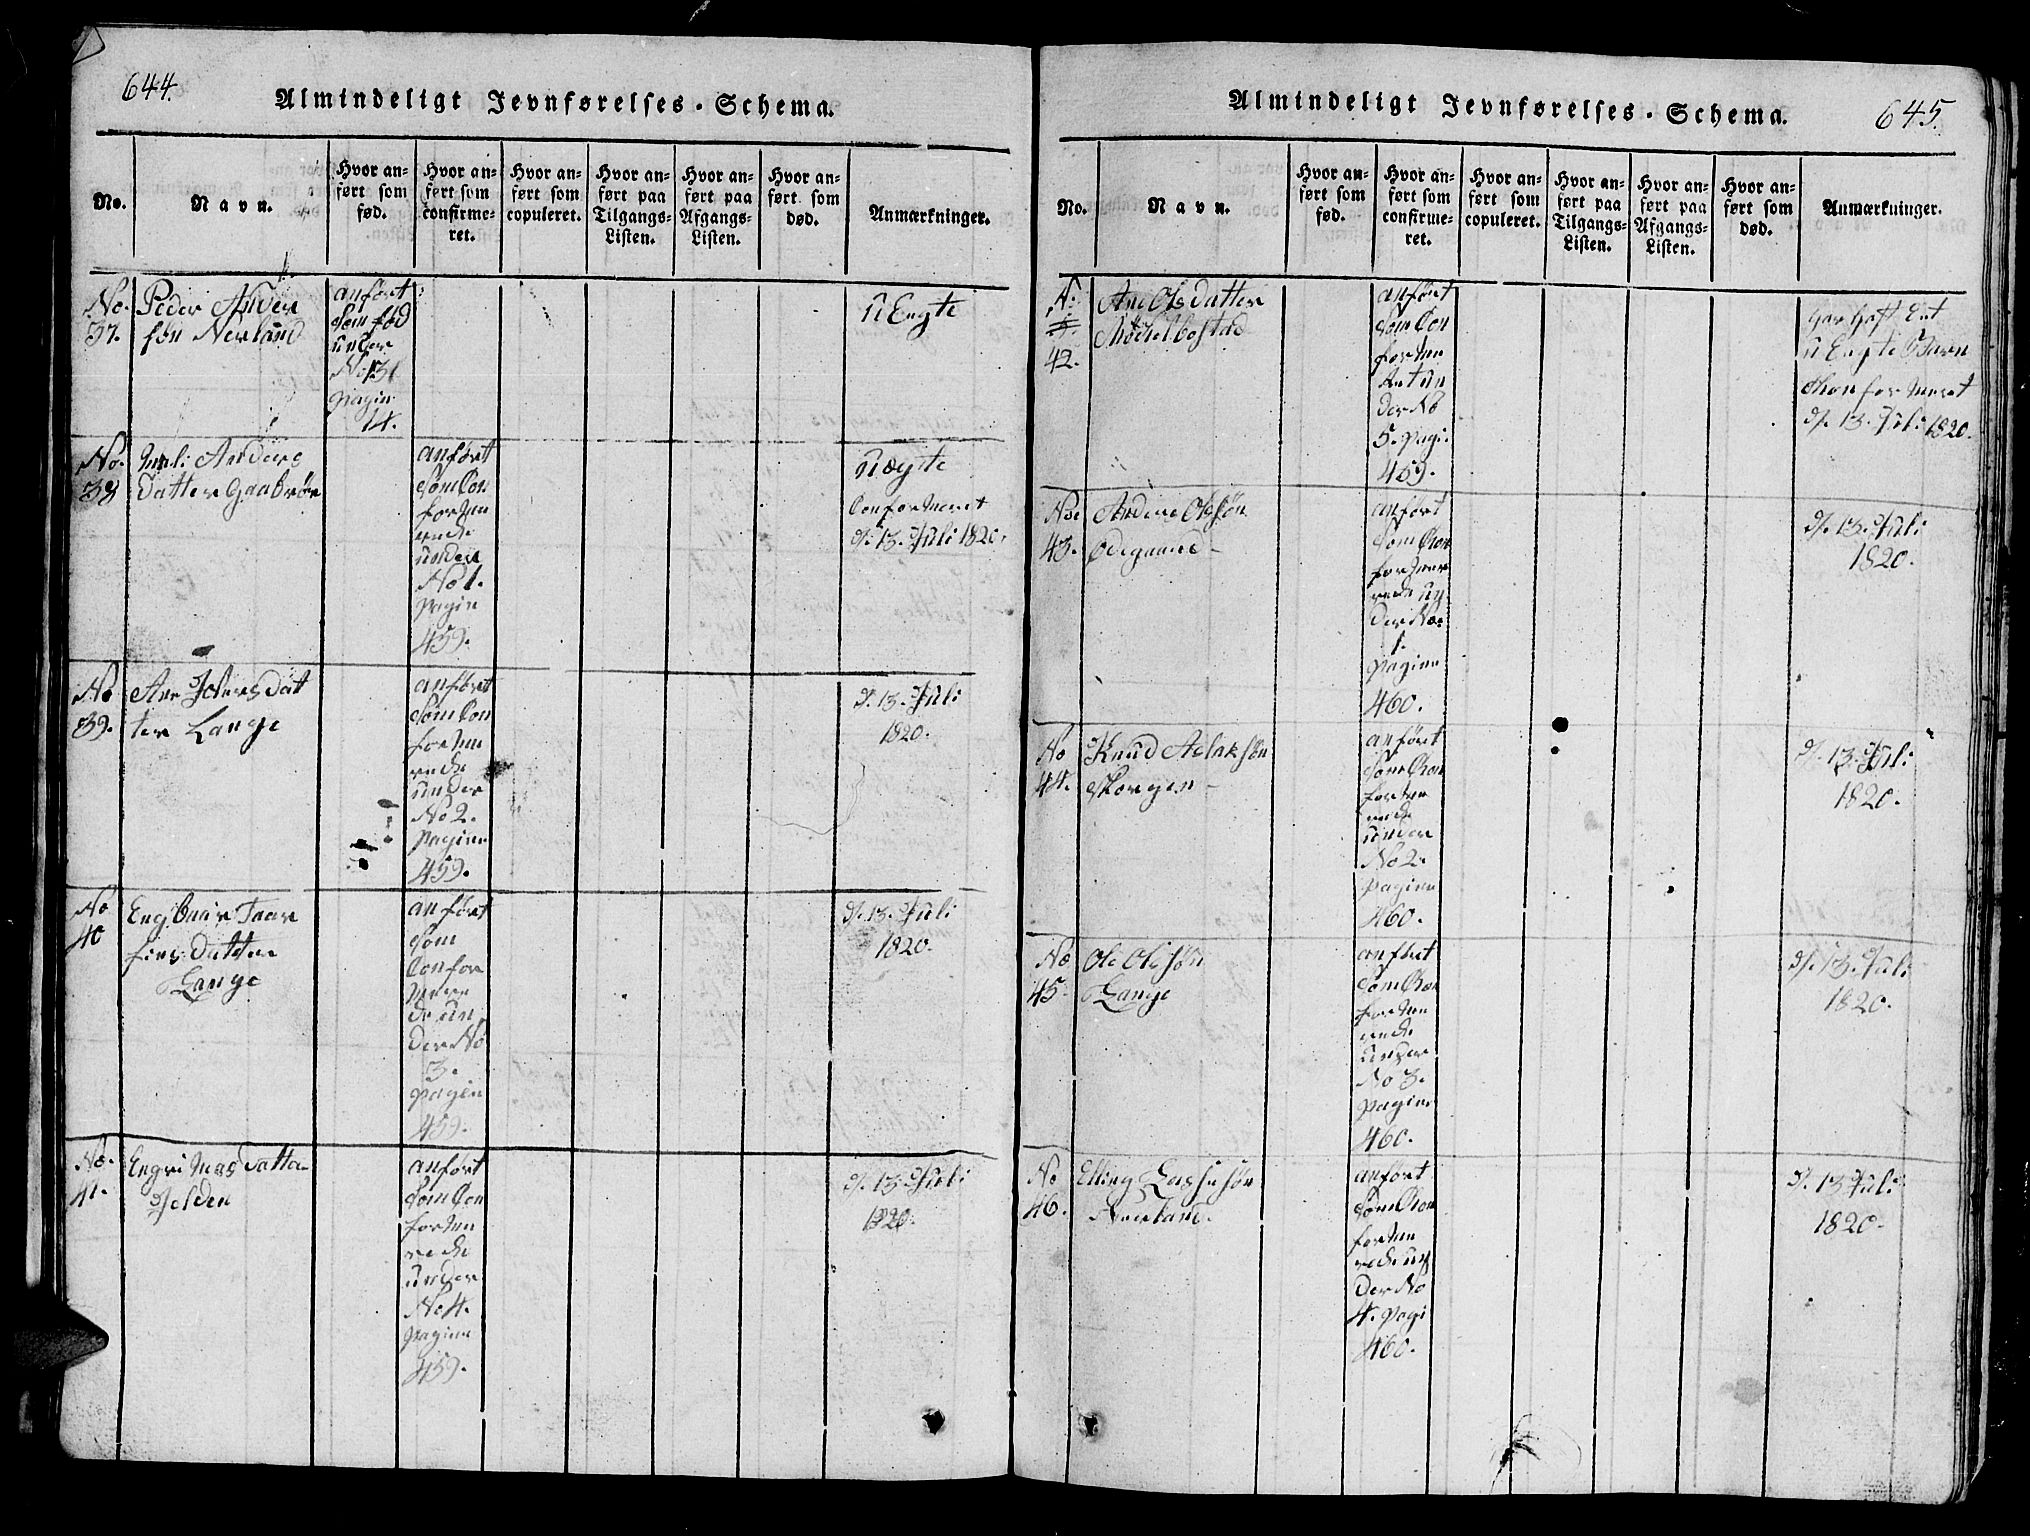 644.
Almindeligt Jevnførelses-Schema.
No.
Navn.
Hvor an-
ført som
fød.
Hvor an-
ført som
confirme-
ret.
Hvor an-
ført som
copuleret.
Hvor an-
ført paa
Tilgangs-
Listen.
Hvor an-
ført paa
Afgangs-
Listen.
Hvor an-
ført som
død.
Anmærkninger.
No.
37.
Peder Ander
søn Nerland
anført
som fød
under
No. 131
pagin
14.
UEngte
No.
38
Anders
datter Gaabrøe
anført
som Con
forme
rede
under
No 1.
pagin
459.
Uægte
Conformeret
d. 13. Juli 1820.
No
39.
Ane Iversdat
ter Lange
anført
som Con
forme
rede
under
No 2.
pagina
459.
d. 13. Juli
1820.
No
40
Engbaar Taar
fins datter
Lange
anført
som
Confor
mere
de un
der No
3.
pagin
459.
d. 13. Juli
1820.
No.
41.
Engri Masdatter
Jelden
anført
som Con
forme
rede
under
No 4.
pagina
459.
d. 13. Juli
1820.
645.
Almindeligt Jevnførelses-Schema.
No.
Navn.
Hvor an-
ført som
fød.
Hvor an-
ført som
confirme-
ret.
Hvor an-
ført som
copuleret.
Hvor an-
ført paa
Tilgangs-
Listen.
Hvor an-
ført paa
Afgangs-
Listen.
Hvor an-
ført som
død.
Anmærkninger.
N.
42.
Ane Olsdatter
Møchelbostad
anført
som Con
forme
der No
5. pagi.
459.
har haft Et
UEngte Barn
Chonformeret
d. 13. Juli 1820.
No
43.
Anders Olsøn
Ødegaard
anført
som Con
forme
rede un
der No
1.
pagina
460.
d. 13. Juli
1820.
No
44.
Knud Aslaksøn
Skorgen
anført
som Con
forme
rede
under
No 2.
pagina
460.
d. 13. Juli
1820.
No
45.
Ole Olesøn
Lange
anført
som Con
forme
rede
under
No 3.
pagina
460.
d. 13. Juli
1820.
No
46.
Elling Lassesøn
Averland.
anført
som Con
forme
rede un
der No
4. pagi
460.
d. 13 Juli
1820.